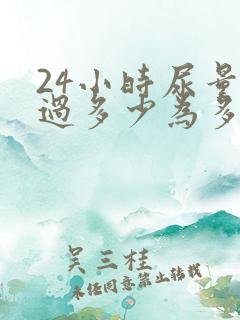 24小时尿量
过多少为多
吴三桂
未经同意禁止转载